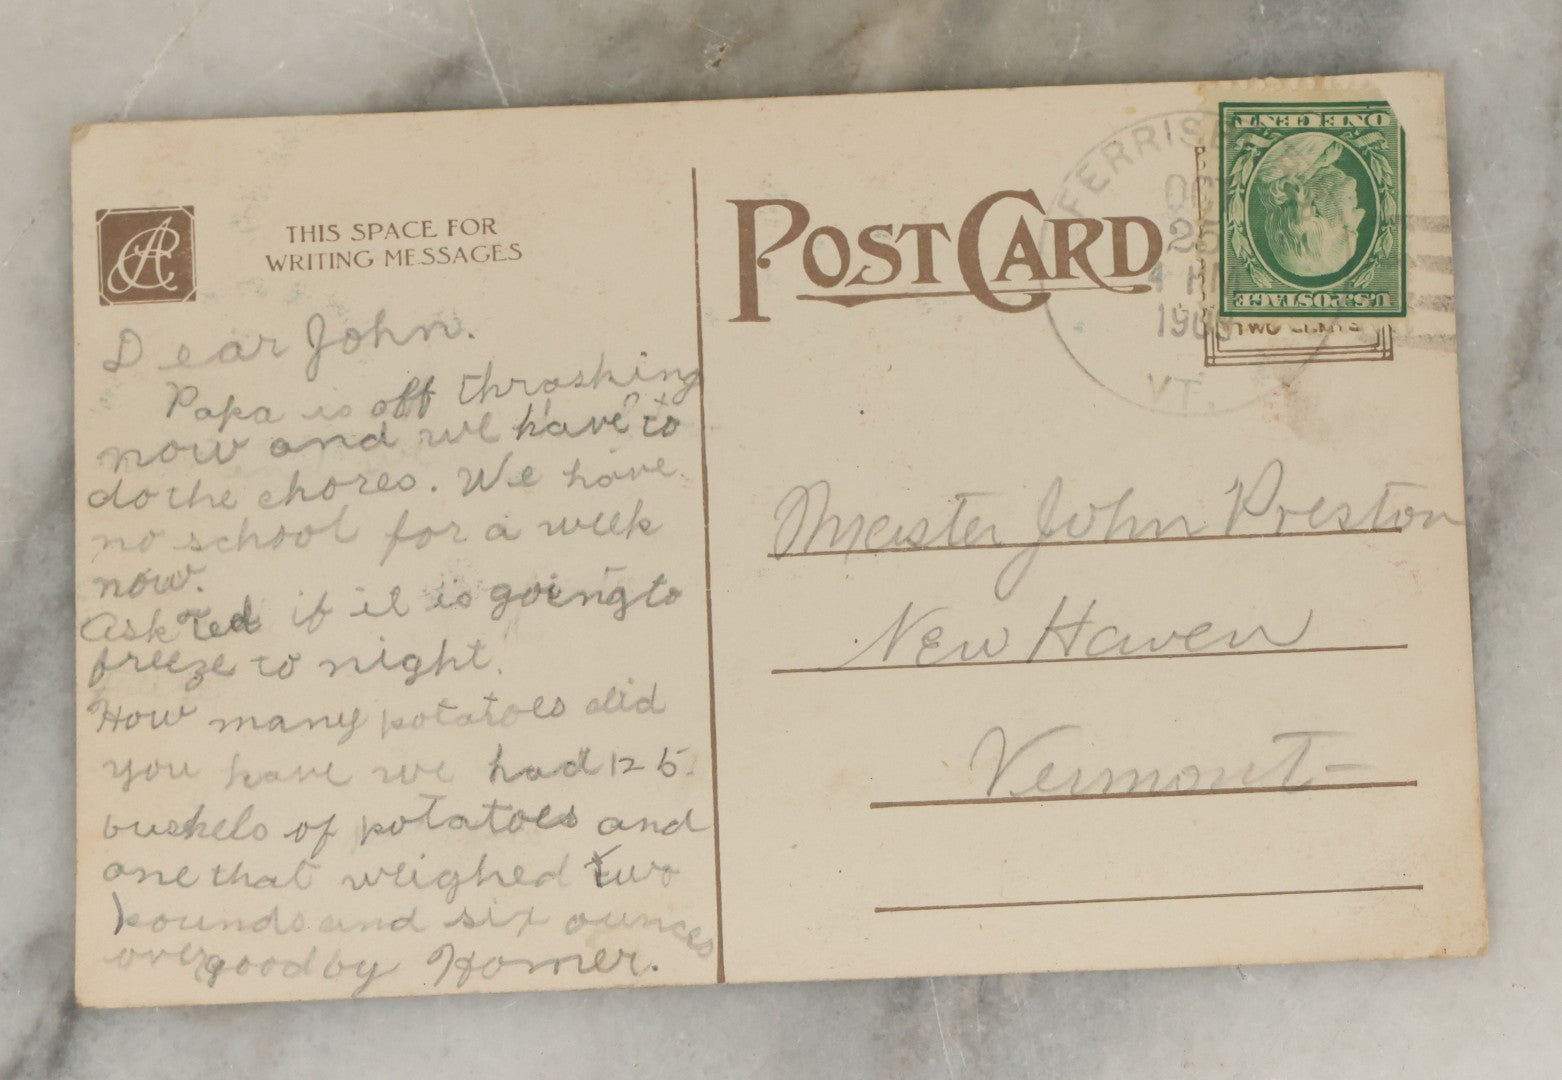 THIS SPACE FOR
WRITING MESSAGES
Dear John.
Papa is off thrashing
now and we have to
do the chores. We have
no school for a week
now.
Ask Ted if it is going to
freeze to night.
How many potatoes did
you have we had 125
bushels of potatoes and
one that weighed two
pounds and six ounces
over goodby Homer.
POST CARD
FERRISB
OCT
25
4 PM
VT.
ONE CENT
U.S. POSTAGE
TWO CENTS
Meister John Preston
New Haven
Vermont-